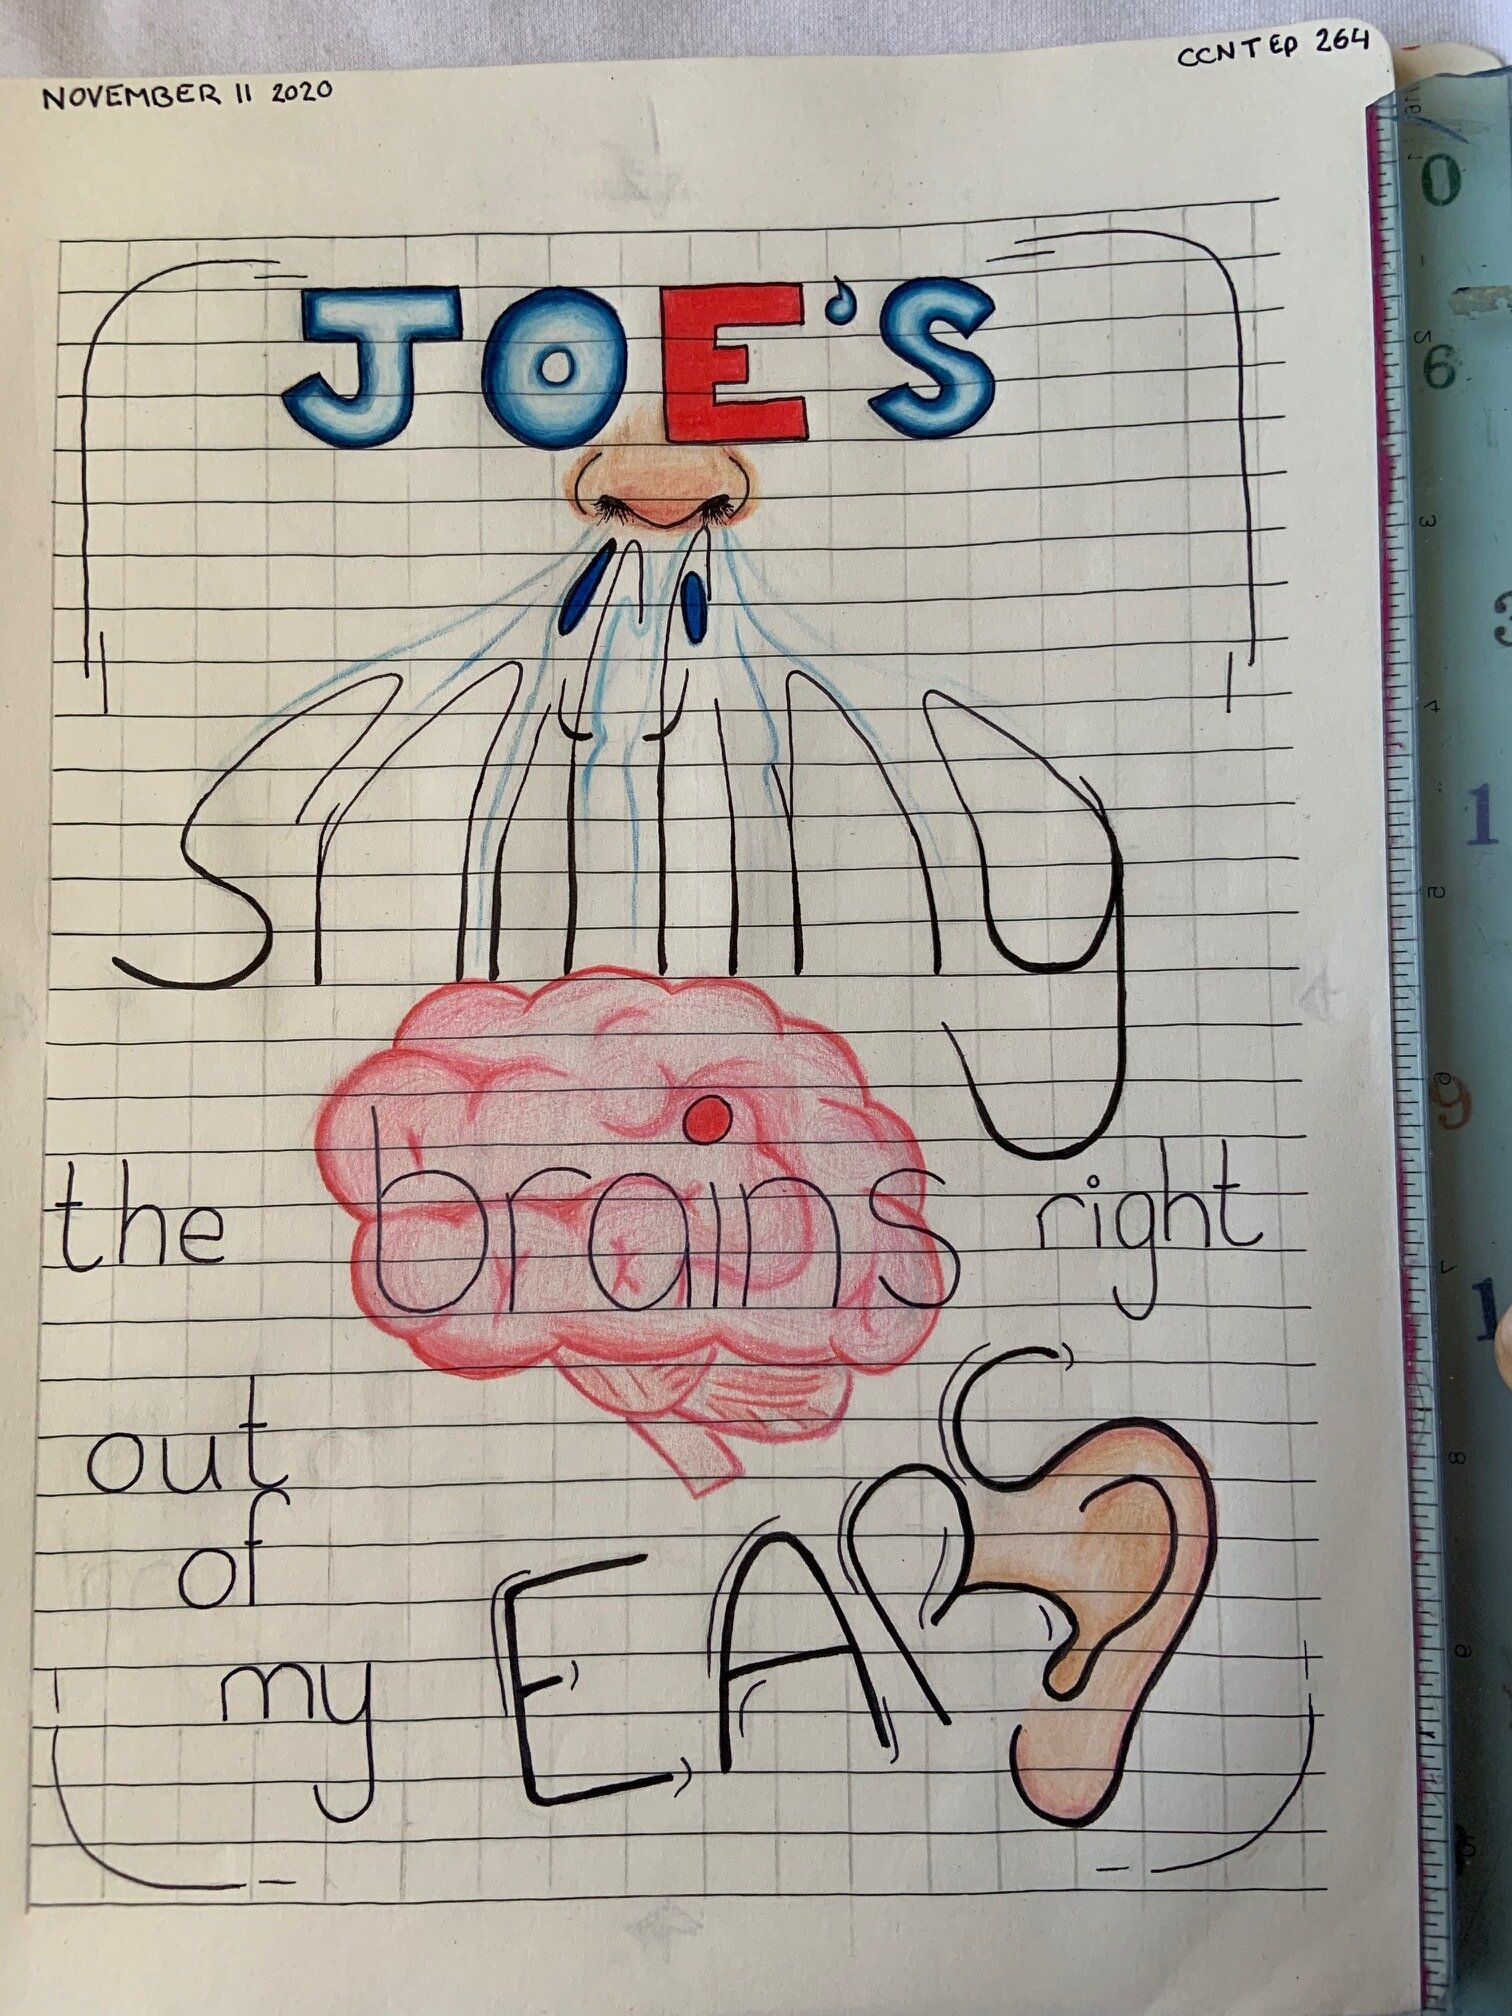 NOVEMBER 11 2020
CCNT EP 264
JOE'S
sniffing
the brains right
out
of
my EARS
0
6
1
9
1